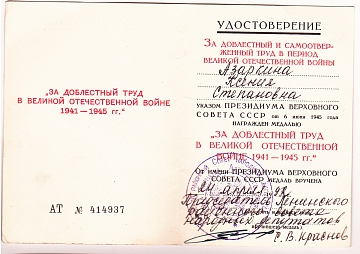 „ЗА ДОБЛЕСТНЫЙ ТРУД
В ВЕЛИКОЙ ОТЕЧЕСТВЕННОЙ ВОЙНЕ
1941—1945 гг.“
АТ № 414937
УДОСТОВЕРЕНИЕ
ЗА ДОБЛЕСТНЫЙ И САМООТВЕР-
ЖЕННЫЙ ТРУД В ПЕРИОД
ВЕЛИКОЙ ОТЕЧЕСТВЕННОЙ ВОЙНЫ
Азаркина
Ксения
Степановна
УКАЗОМ ПРЕЗИДИУМА ВЕРХОВНОГО
СОВЕТА СССР от 6 июня 1945 года
НАГРАЖДЕН МЕДАЛЬЮ
„ЗА ДОБЛЕСТНЫЙ ТРУД
В ВЕЛИКОЙ ОТЕЧЕСТВЕННОЙ
ВОЙНЕ 1941—1945 гг.“
От имени ПРЕЗИДИУМА ВЕРХОВНОГО
СОВЕТА СССР МЕДАЛЬ ВРУЧЕНА
Председатель Ленинского
районного совета
народных депутатов
С. В. Краснов